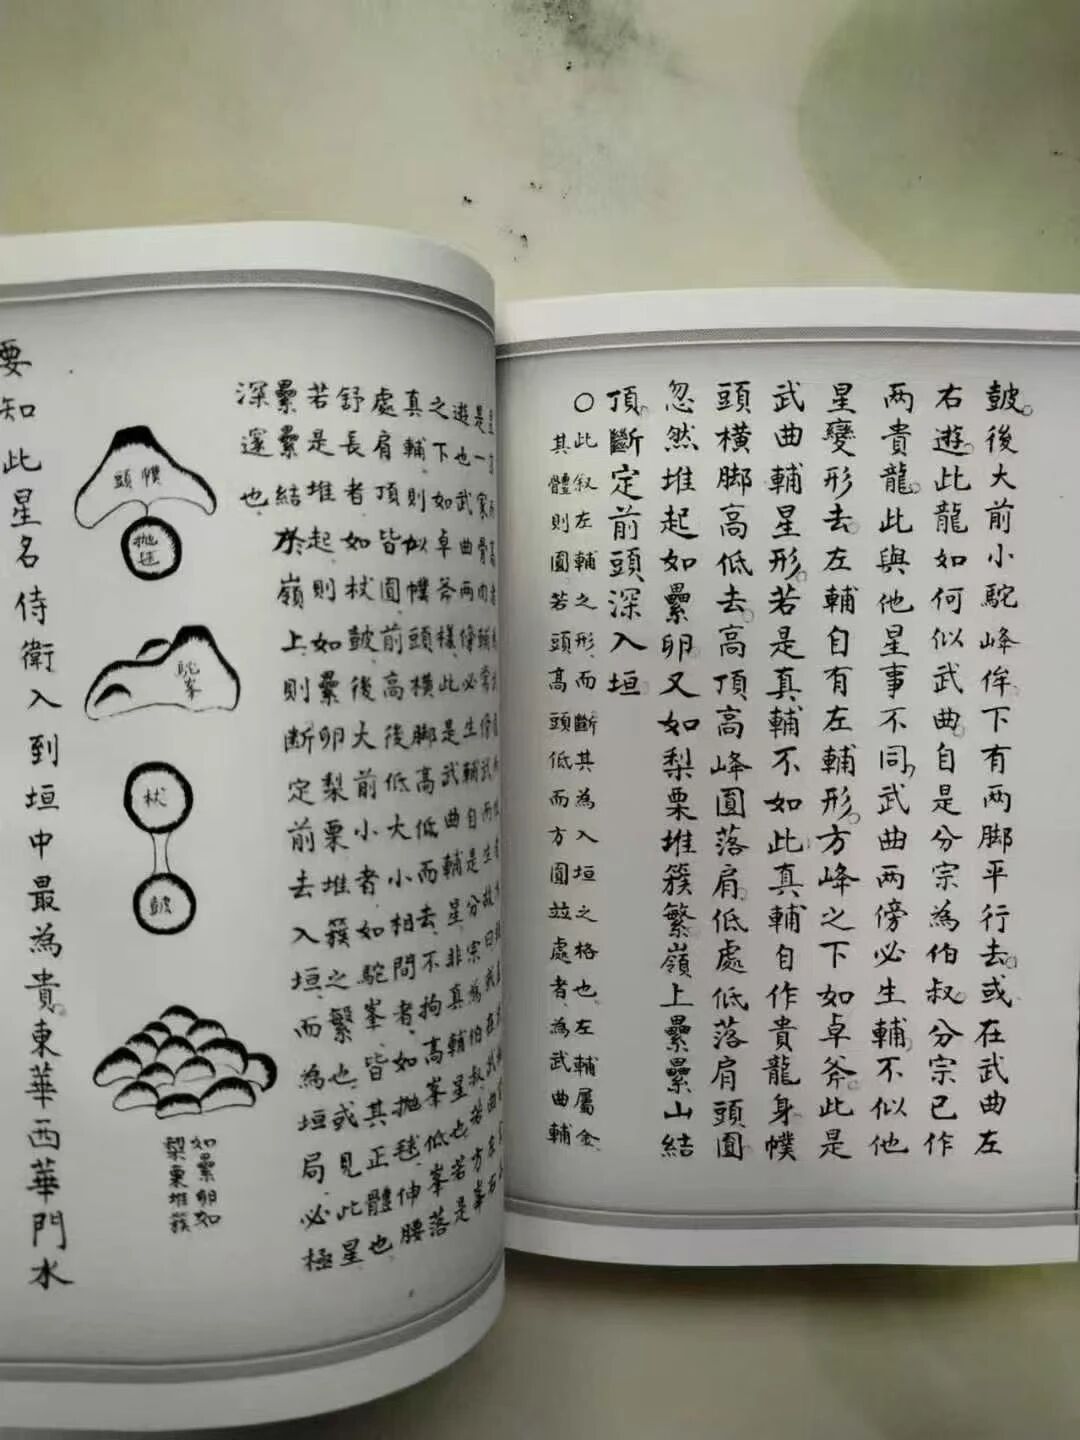 皷。後大前小駝峰侔。下有两脚平行去。或在武曲左
右遊。此龍如何似武曲。自是分宗為伯叔。分宗已作
两貴龍。此與他星事不同。武曲两傍必生輔。不似他
星變形去。左輔自有左輔形。方峰之下如卓斧。此是
武曲輔星形。若是真輔不如此。真輔自作貴龍身。幞
頭横脚高低去。高頂高峰圓落肩。低處低落肩頭圓。
忽然堆起如纍卵。又如梨栗堆簇繁。嶺上纍纍山結
頂。斷定前頭深入垣。
○此叙左輔之形而斷其為入垣之格也左輔屬金
其體則圓若頭高頭低而方圓竝處者為武曲輔
是一家骨肉
遊也武曲两傍必生輔自是分宗為伯叔若方峯
之下如卓斧樣此是武曲輔星非真輔星也若是
真輔則似幞頭横脚高低而去不拘高峯低峯落
處肩頂皆圓前高後低大小相問者如抛毬伸腰
舒長者如杖皷後大前小者如駝峯皆其正體也
若是堆起則如纍卵梨栗堆簇之繁也或見此星
纍纍結於嶺上則断定前去入垣而為垣局必極
深邃也
幞頭
抛毬
駝峯
杖
皷
如纍卵如
梨栗堆簇
要知此星名侍衛入到垣中最為貴。東華西華門水